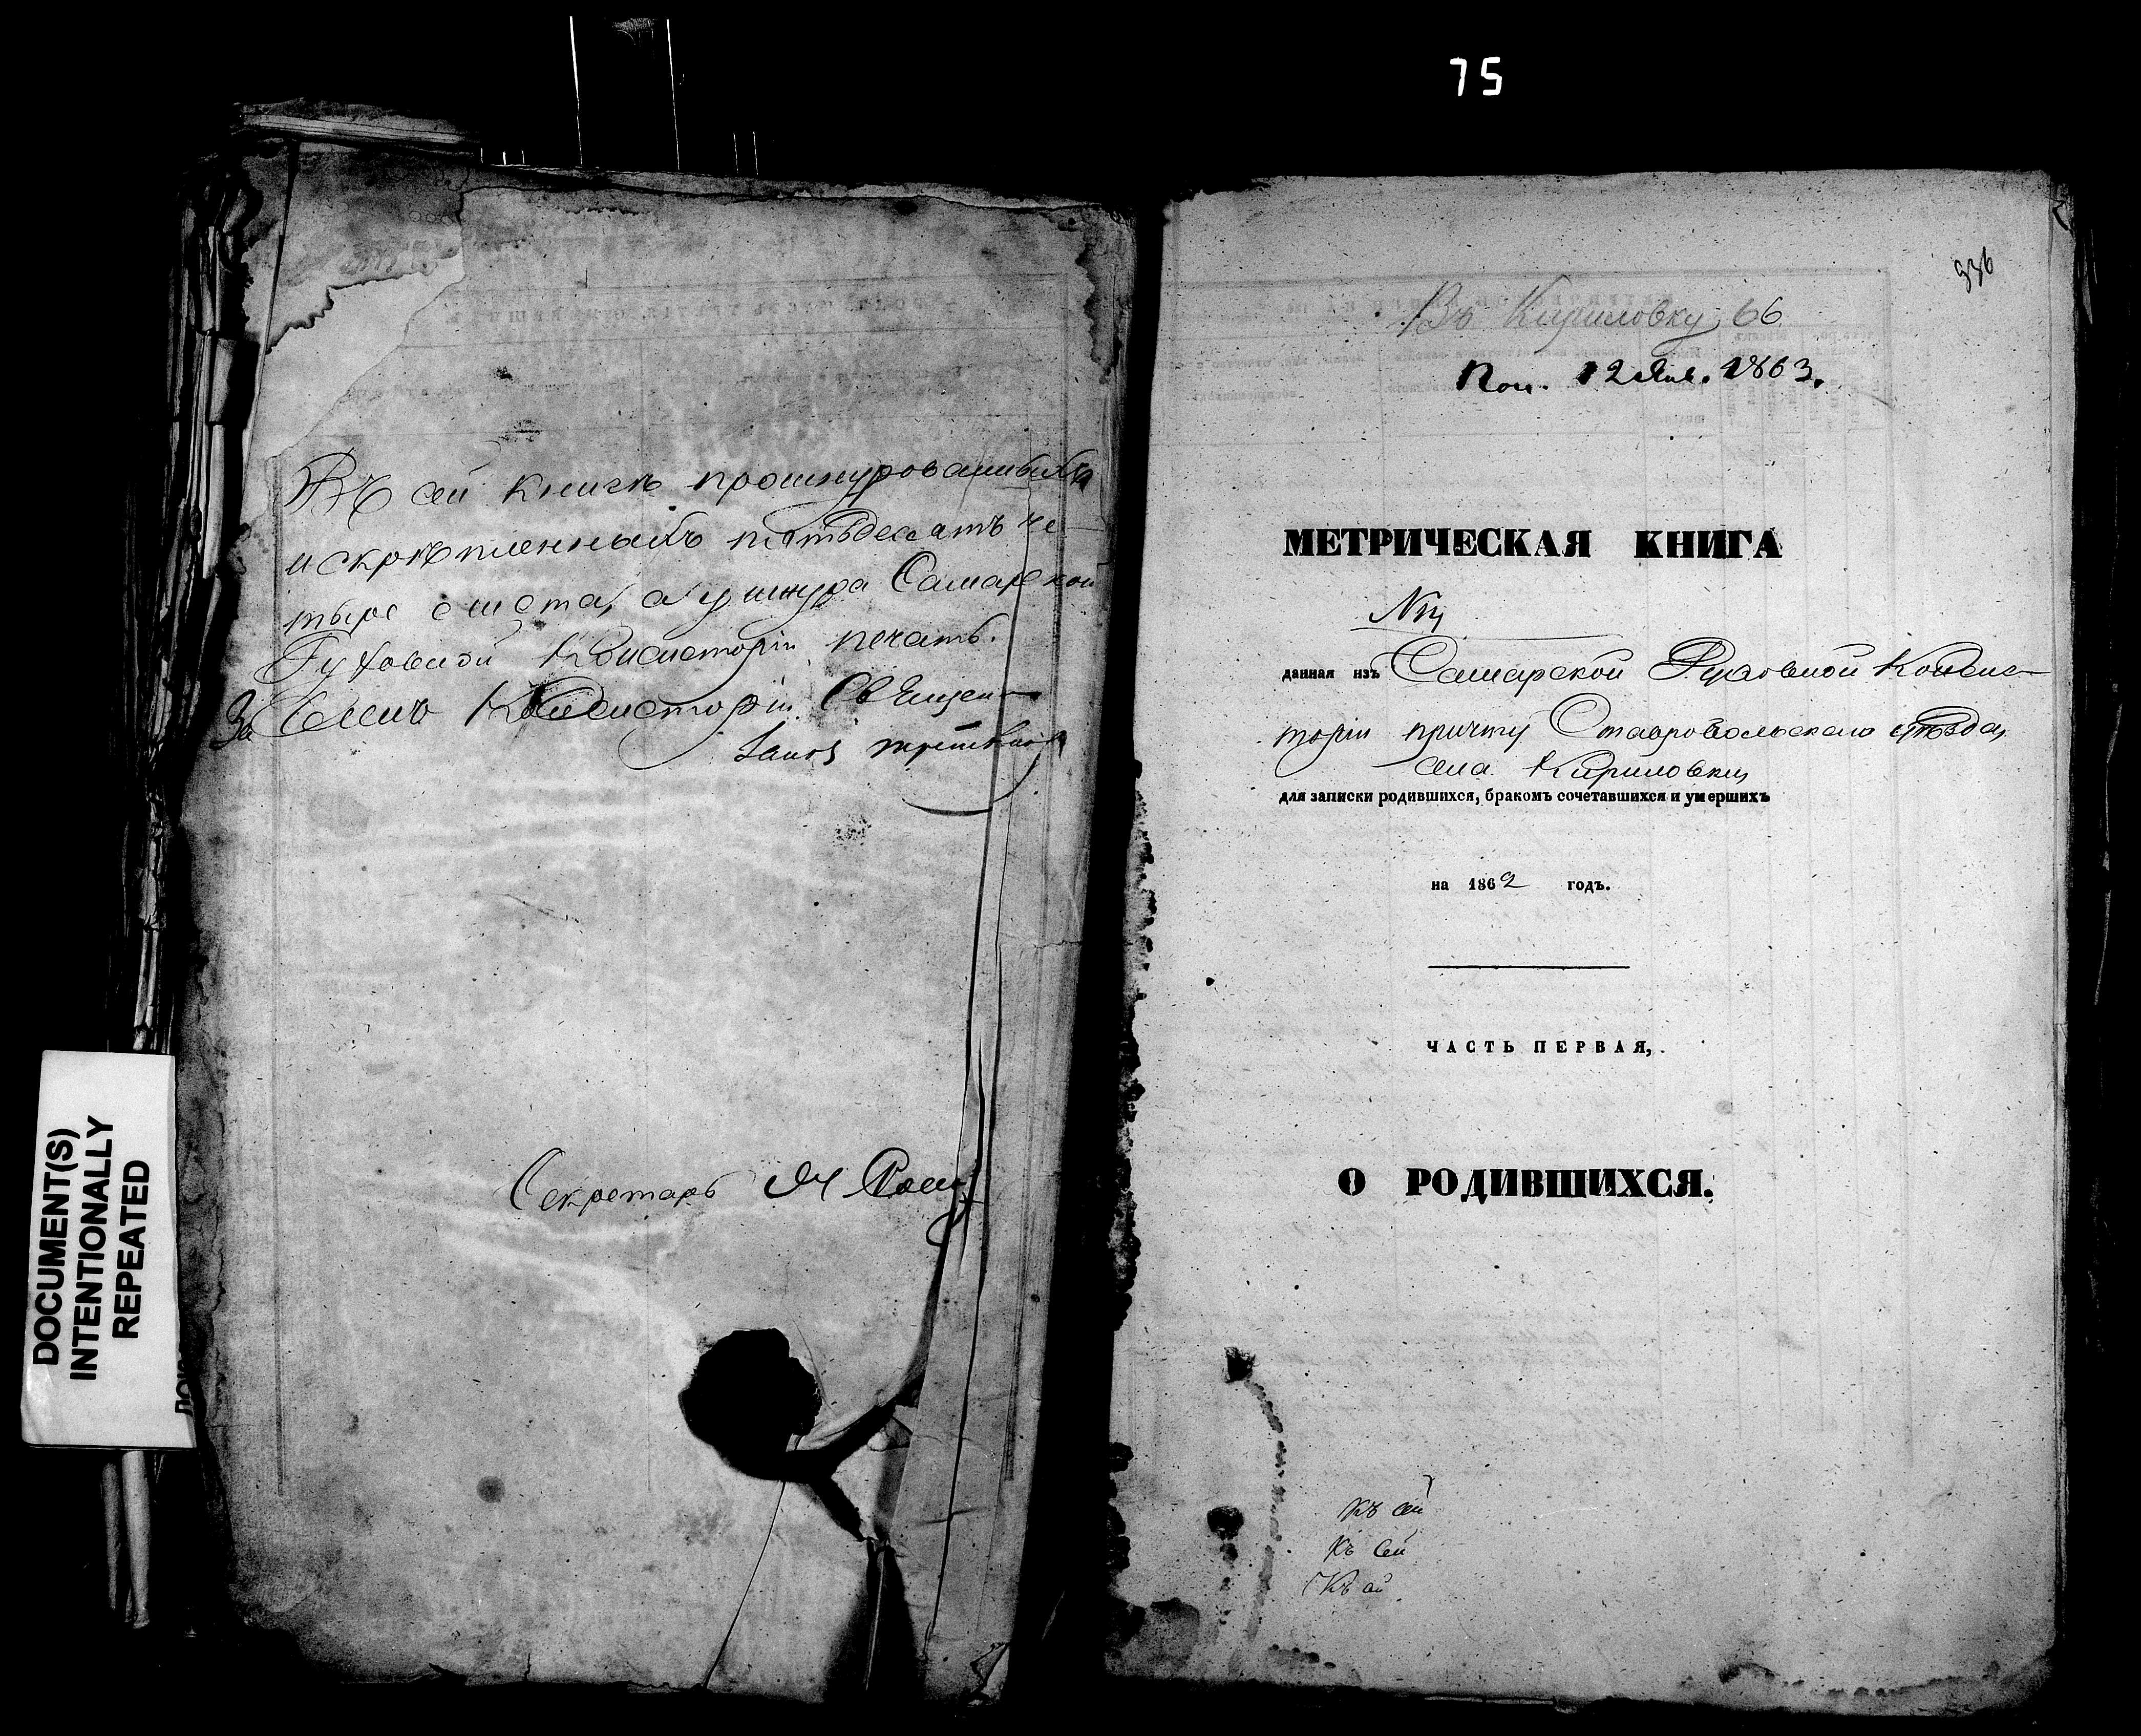 75
Въ сей книгѣ прошнурованныхъ
и скрѣпленныхъ пятьдесятъ че
тыре листа, а у шнура Самарской
Духовной Консисторіи печать.
За Члена Консисторіи Священ
Секретарь
DOCUMENT(S)
INTENTIONALLY
REPEATED
336
Въ Кириловку 66
Пол. 12 Янв. 1863.
МЕТРИЧЕСКАЯ КНИГА
данная изъ Самарской Духовной Консис
торіи причту Ставропольскаго уѣзда,
села Кириловки
для записки родившихся, бракомъ сочетавшихся и умершихъ
на 1862 годъ.
ЧАСТЬ ПЕРВАЯ,
О РОДИВШИХСЯ.
Къ сей
Къ сей
Къ сй